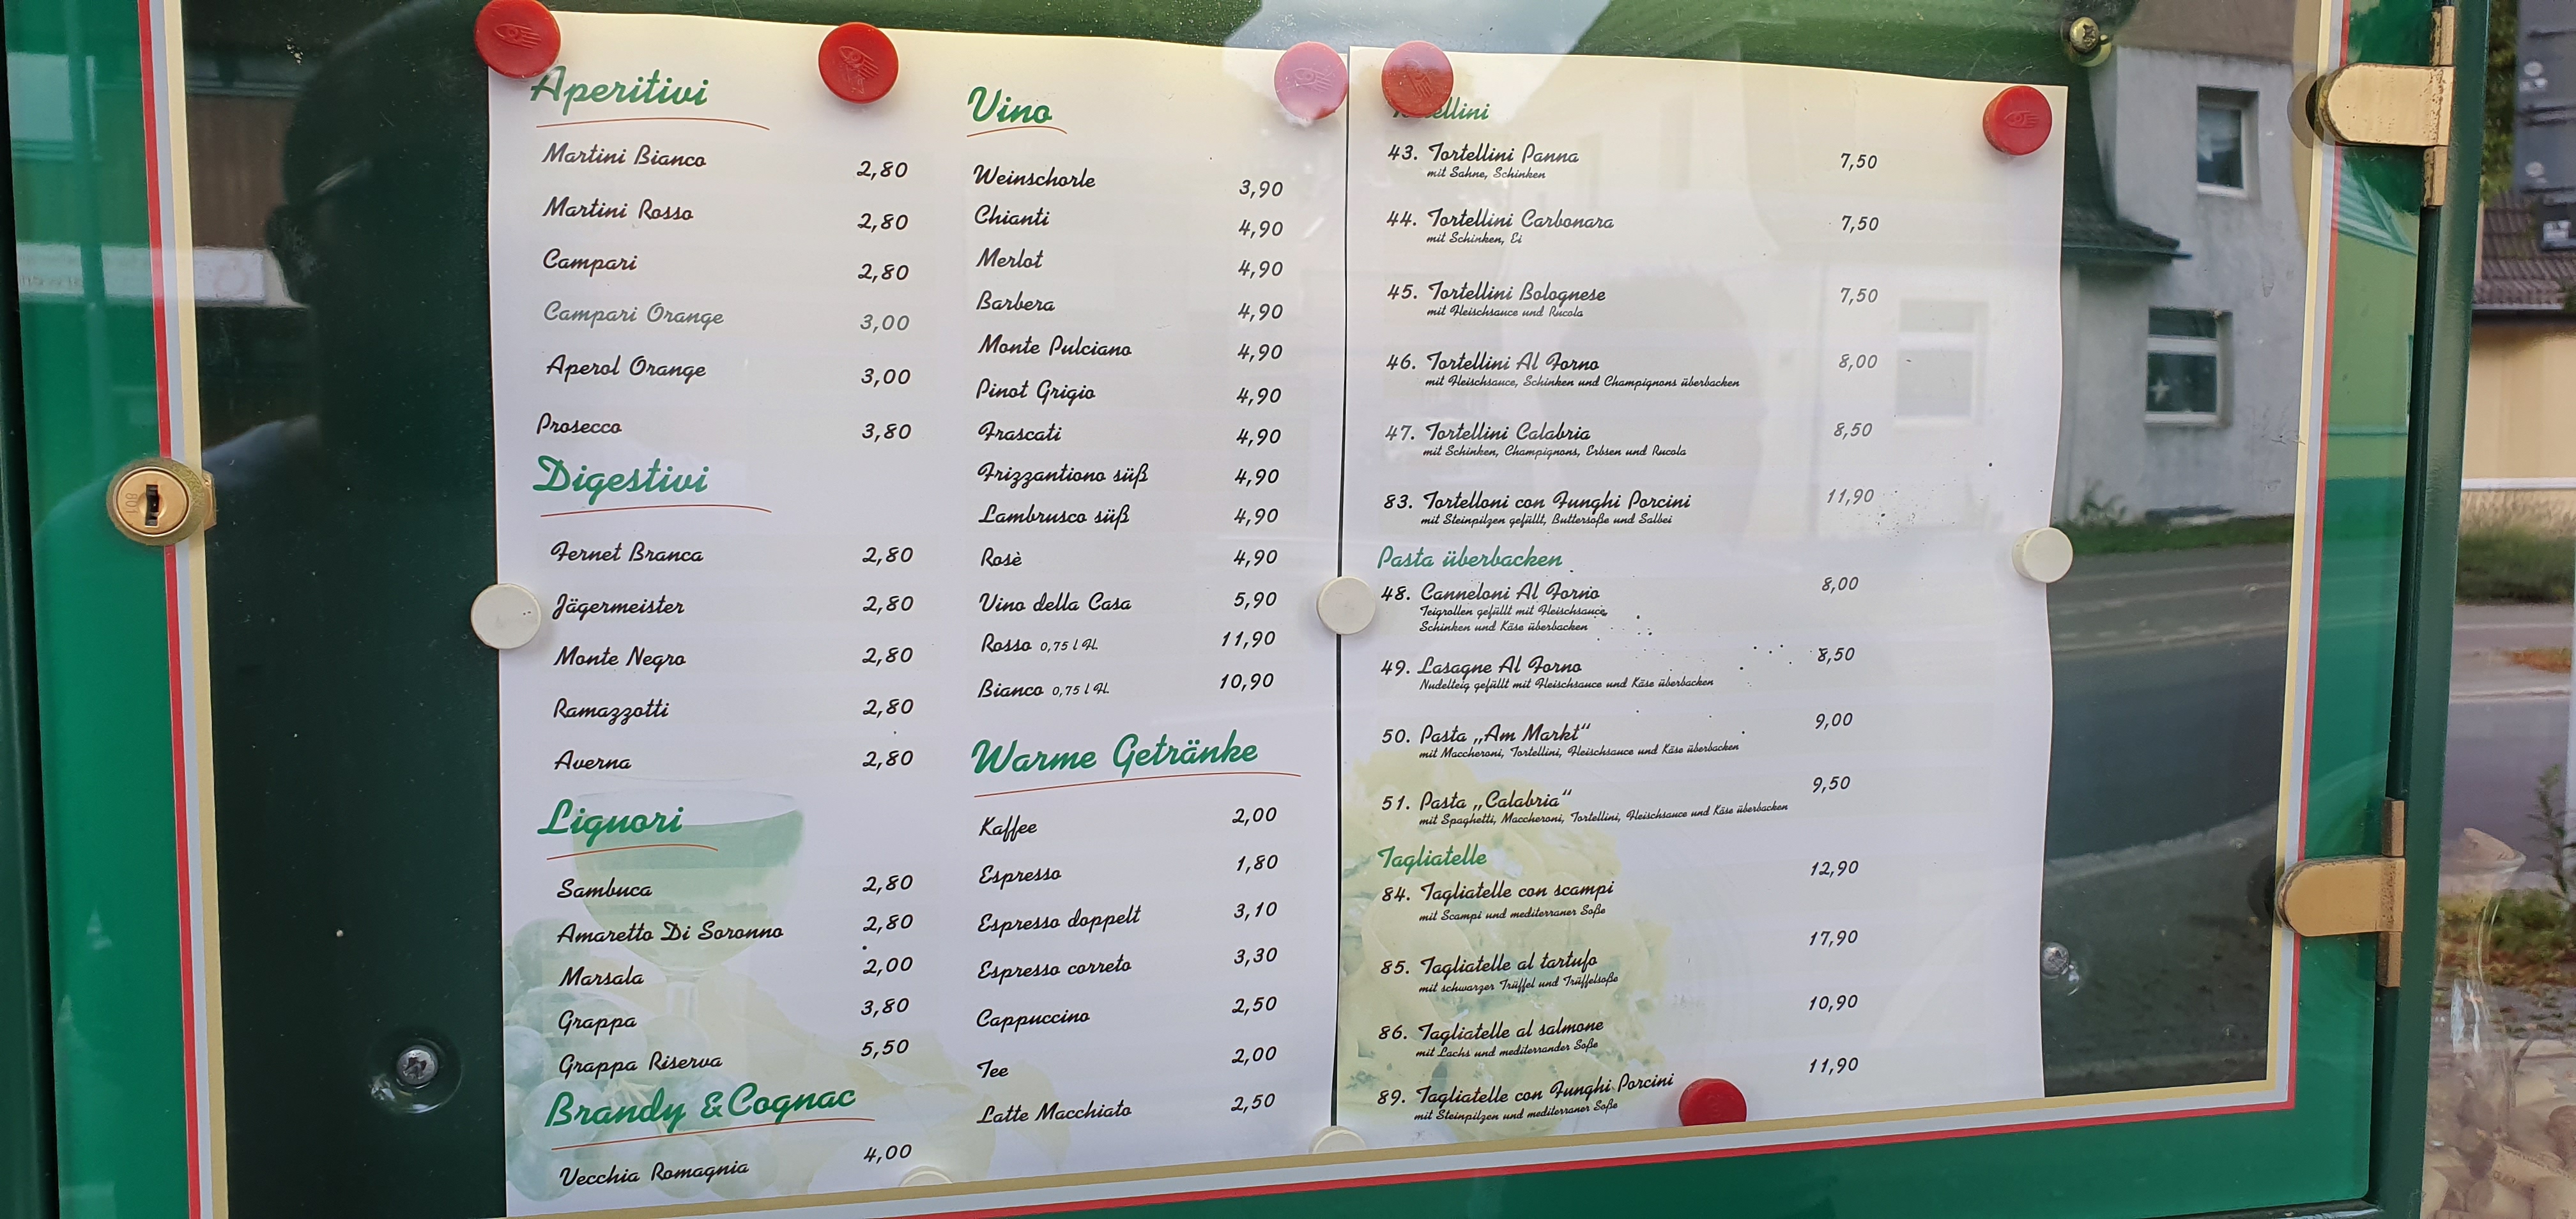 Aperitivi
Martini Bianco 2,80
Martini Rosso 2,80
Campari 2,80
Campari Orange 3,00
Aperol Orange 3,00
Prosecco 3,80
Digestivi
Fernet Branca 2,80
Jägermeister 2,80
Monte Negro 2,80
Ramazzotti 2,80
Averna 2,80
Liguori
Sambuca 2,80
Amaretto Di Soronno 2,80
Marsala 2,00
Grappa 3,80
Grappa Riserva 5,50
Brandy & Cognac
Vecchia Romagnia 4,00
Vino
Weinschorle 3,90
Chianti 4,90
Merlot 4,90
Barbera 4,90
Monte Pulciano 4,90
Pinot Grigio 4,90
Frascati 4,90
Frizzantiono süß 4,90
Lambrusco süß 4,90
Rosè 4,90
Vino della Casa 5,90
Rosso 0,75 l Fl. 11,90
Bianco 0,75 l Fl. 10,90
Warme Getränke
Kaffee 2,00
Espresso 1,80
Espresso doppelt 3,10
Espresso correto 3,30
Cappuccino 2,50
Tee 2,00
Latte Macchiato 2,50
43. Tortellini Panna 7,50
mit Sahne, Schinken
44. Tortellini Carbonara 7,50
mit Schinken, Ei
45. Tortellini Bolognese 7,50
mit Fleischsauce und Rucola
46. Tortellini Al Forno 8,00
mit Fleischsauce, Schinken und Champignons überbacken
47. Tortellini Calabria 8,50
mit Schinken, Champignons, Erbsen und Rucola
83. Tortelloni con Funghi Porcini 11,90
mit Steinpilzen gefüllt, Buttersoße und Salbei
Pasta überbacken
48. Canneloni Al Forno 8,00
Teigrollen gefüllt mit Fleischsauce,
Schinken und Käse überbacken
49. Lasagne Al Forno 8,50
Nudelteig gefüllt mit Fleischsauce und Käse überbacken
50. Pasta „Am Markt“ 9,00
mit Maccheroni, Tortellini, Fleischsauce und Käse überbacken
51. Pasta „Calabria“ 9,50
mit Spaghetti, Maccheroni, Tortellini, Fleischsauce und Käse überbacken
Tagliatelle
84. Tagliatelle con scampi 12,90
mit Scampi und mediterraner Soße
85. Tagliatelle al tartufo 17,90
mit schwarzer Trüffel und Trüffelsoße
86. Tagliatelle al salmone 10,90
mit Lachs und mediterrander Soße
89. Tagliatelle con Funghi Porcini 11,90
mit Steinpilzen und mediterraner Soße